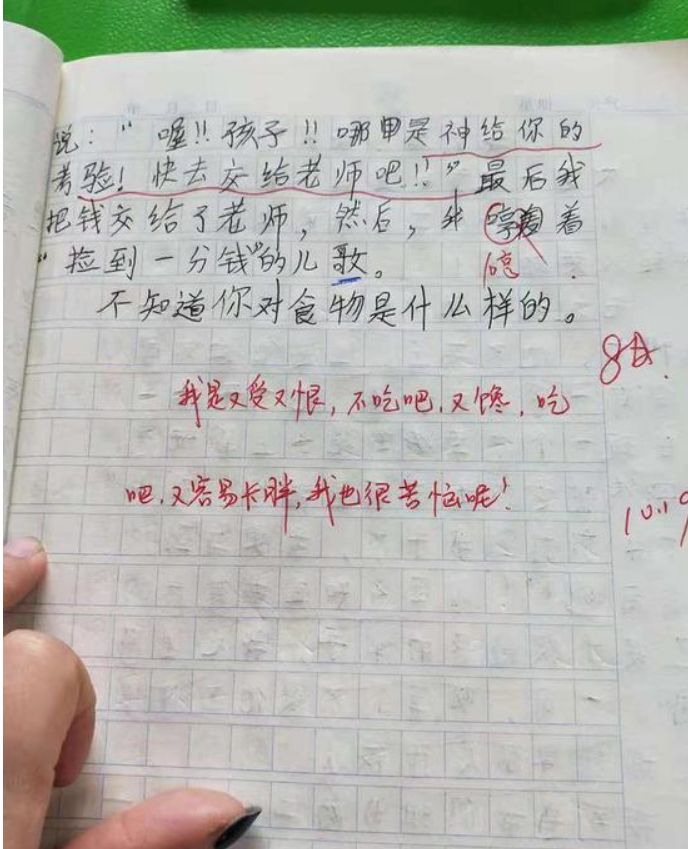 说：“喔!!孩子!!哪里是神给你的
考验！快去交给老师吧!!”最后我
把钱交给了老师，然后，我 着
哼
“捡到一分钱”的儿歌。
不知道你对食物是什么样的。
8日.
我是又爱又恨，不吃吧，又馋，吃
吧，又容易长胖，我也很苦恼呢！
10.19